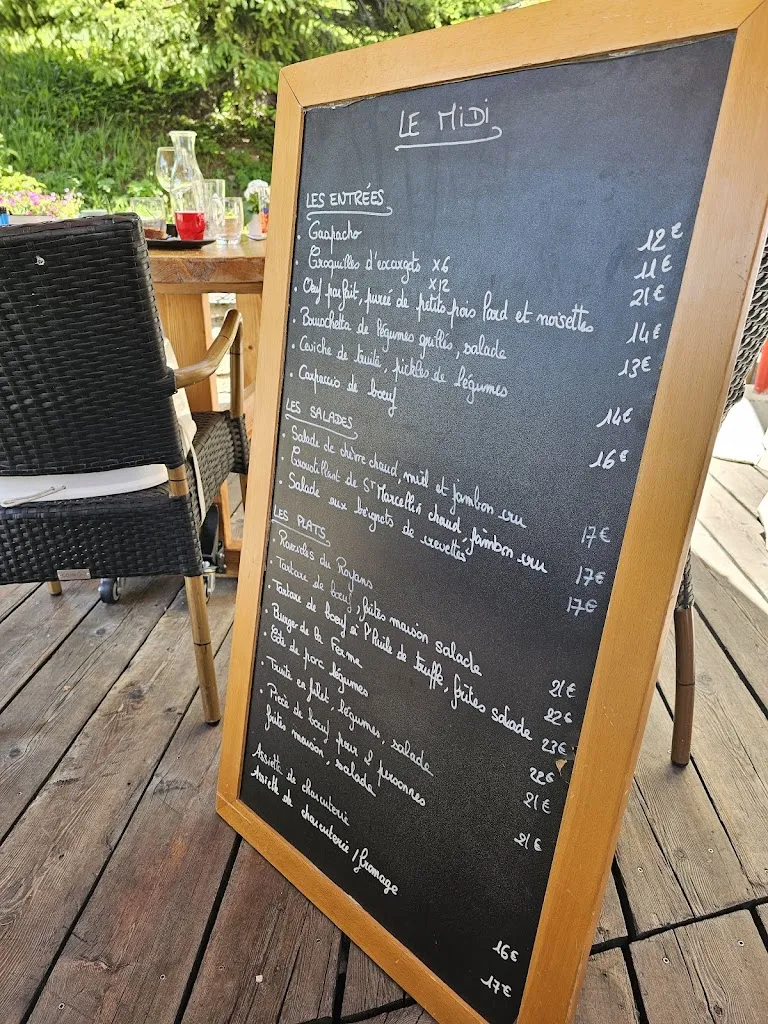 LE MiDi
LES ENTRÉES
· Gaspacho 12€
· Croquilles d'escargots x6 11€
x12 21€
· Œuf parfait, purée de petits pois lard et noisettes 14€
· Bruschetta de légumes grillés, salade 13€
· Ceviche de truite, pickles de légumes 14€
· Carpaccio de bœuf 16€
LES SALADES
· Salade de chèvre chaud, miel et jambon cru 17€
· Croustillant de ST Marcellin chaud, jambon cru 17€
· Salade aux beignets de crevettes 17€
LES PLATS
· Ravioles du Royans 21€
· Tartare de bœuf, frites maison salade 22€
· Tartare de bœuf à l'huile de truffe, frites salade 23€
· Burger de la Ferme 22€
· Côte de porc légumes 21€
· Truite en filet, légumes, salade 21€
· Pièce de bœuf pour 2 personnes
frites maison, salade
Assiette de charcuterie 16€
Assiette de charcuterie / fromage 17€